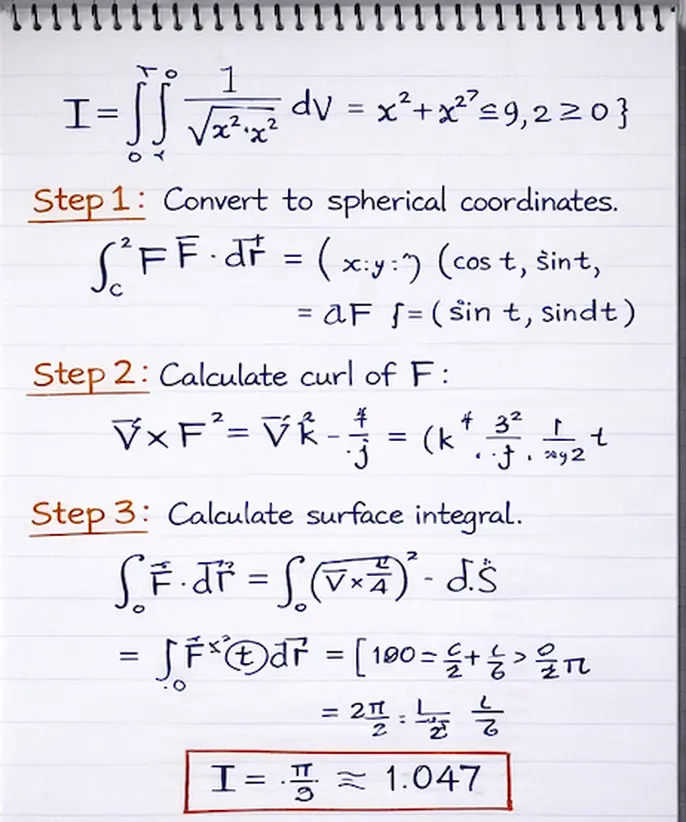 I = ∫∫ 1/√x²·x² dV = x²+x²⁷≤9, 2 ≥ 0}
Step 1: Convert to spherical coordinates.
∫c² F F̅ · dr⃗ = ( x:y: ) (cos t, sin t,
= aF ∫=(sin t, sindt)
Step 2: Calculate curl of F:
V⃗ × F² = V⃗ k̂ - 4/j = (k⁴ 3²/j . 1/xy2 t
Step 3: Calculate surface integral.
∫₀ F⃗ · dr⃗ = ∫₀ (V̅ × /4)² - d.S
= ∫.₀ F⃗ˣ (t) dr = [100 = /2 + /6 > 0/2 π
= 2π/2 :
I = · π/9 ≈ 1.047